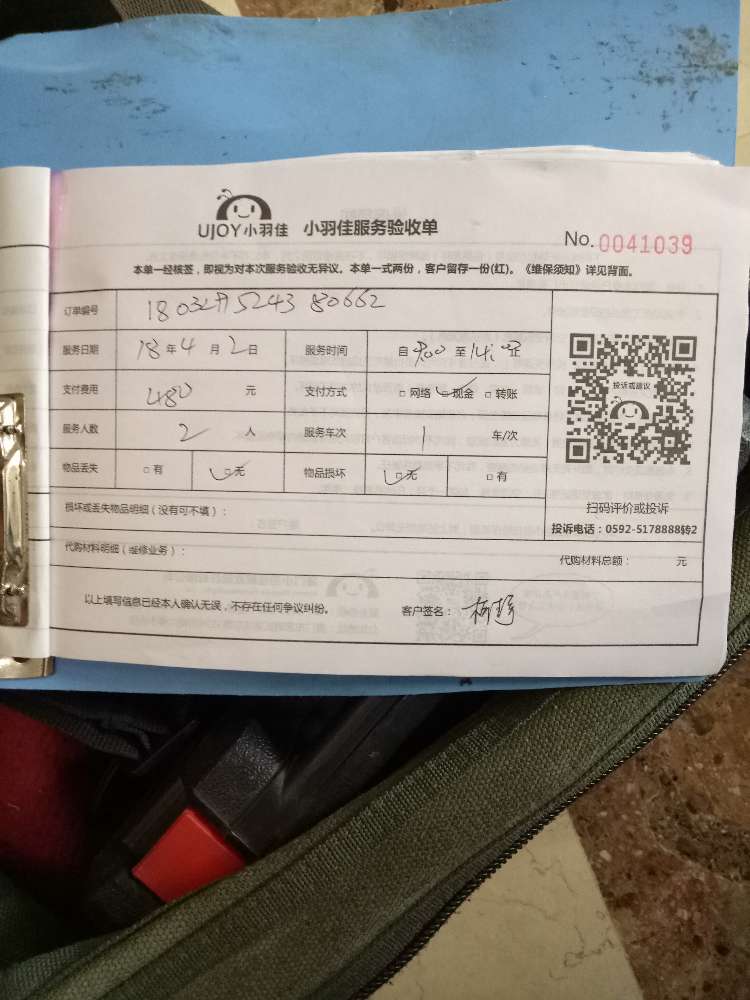 UJOY小羽佳 小羽佳服务验收单 No.0041039
本单一经核签，即视为对本次服务验收无异议。本单一式两份，客户留存一份(红)。《维保须知》详见背面。
订单编号
服务日期 18年4月2日 服务时间 自9:00至14:00止
支付费用 480元 支付方式 □网络 □现金 □转账
投诉或建议
服务人数 2人 服务车次 1车/次
物品丢失 □有 □无 物品损坏 □无 □有
扫码评价或投诉
损坏或丢失物品明细（没有可不填）：
投诉电话：0592-5178888转2
代购材料明细（维修业务）： 代购材料总额： 元
以上填写信息已经本人确认无误，不存在任何争议纠纷。 客户签名：